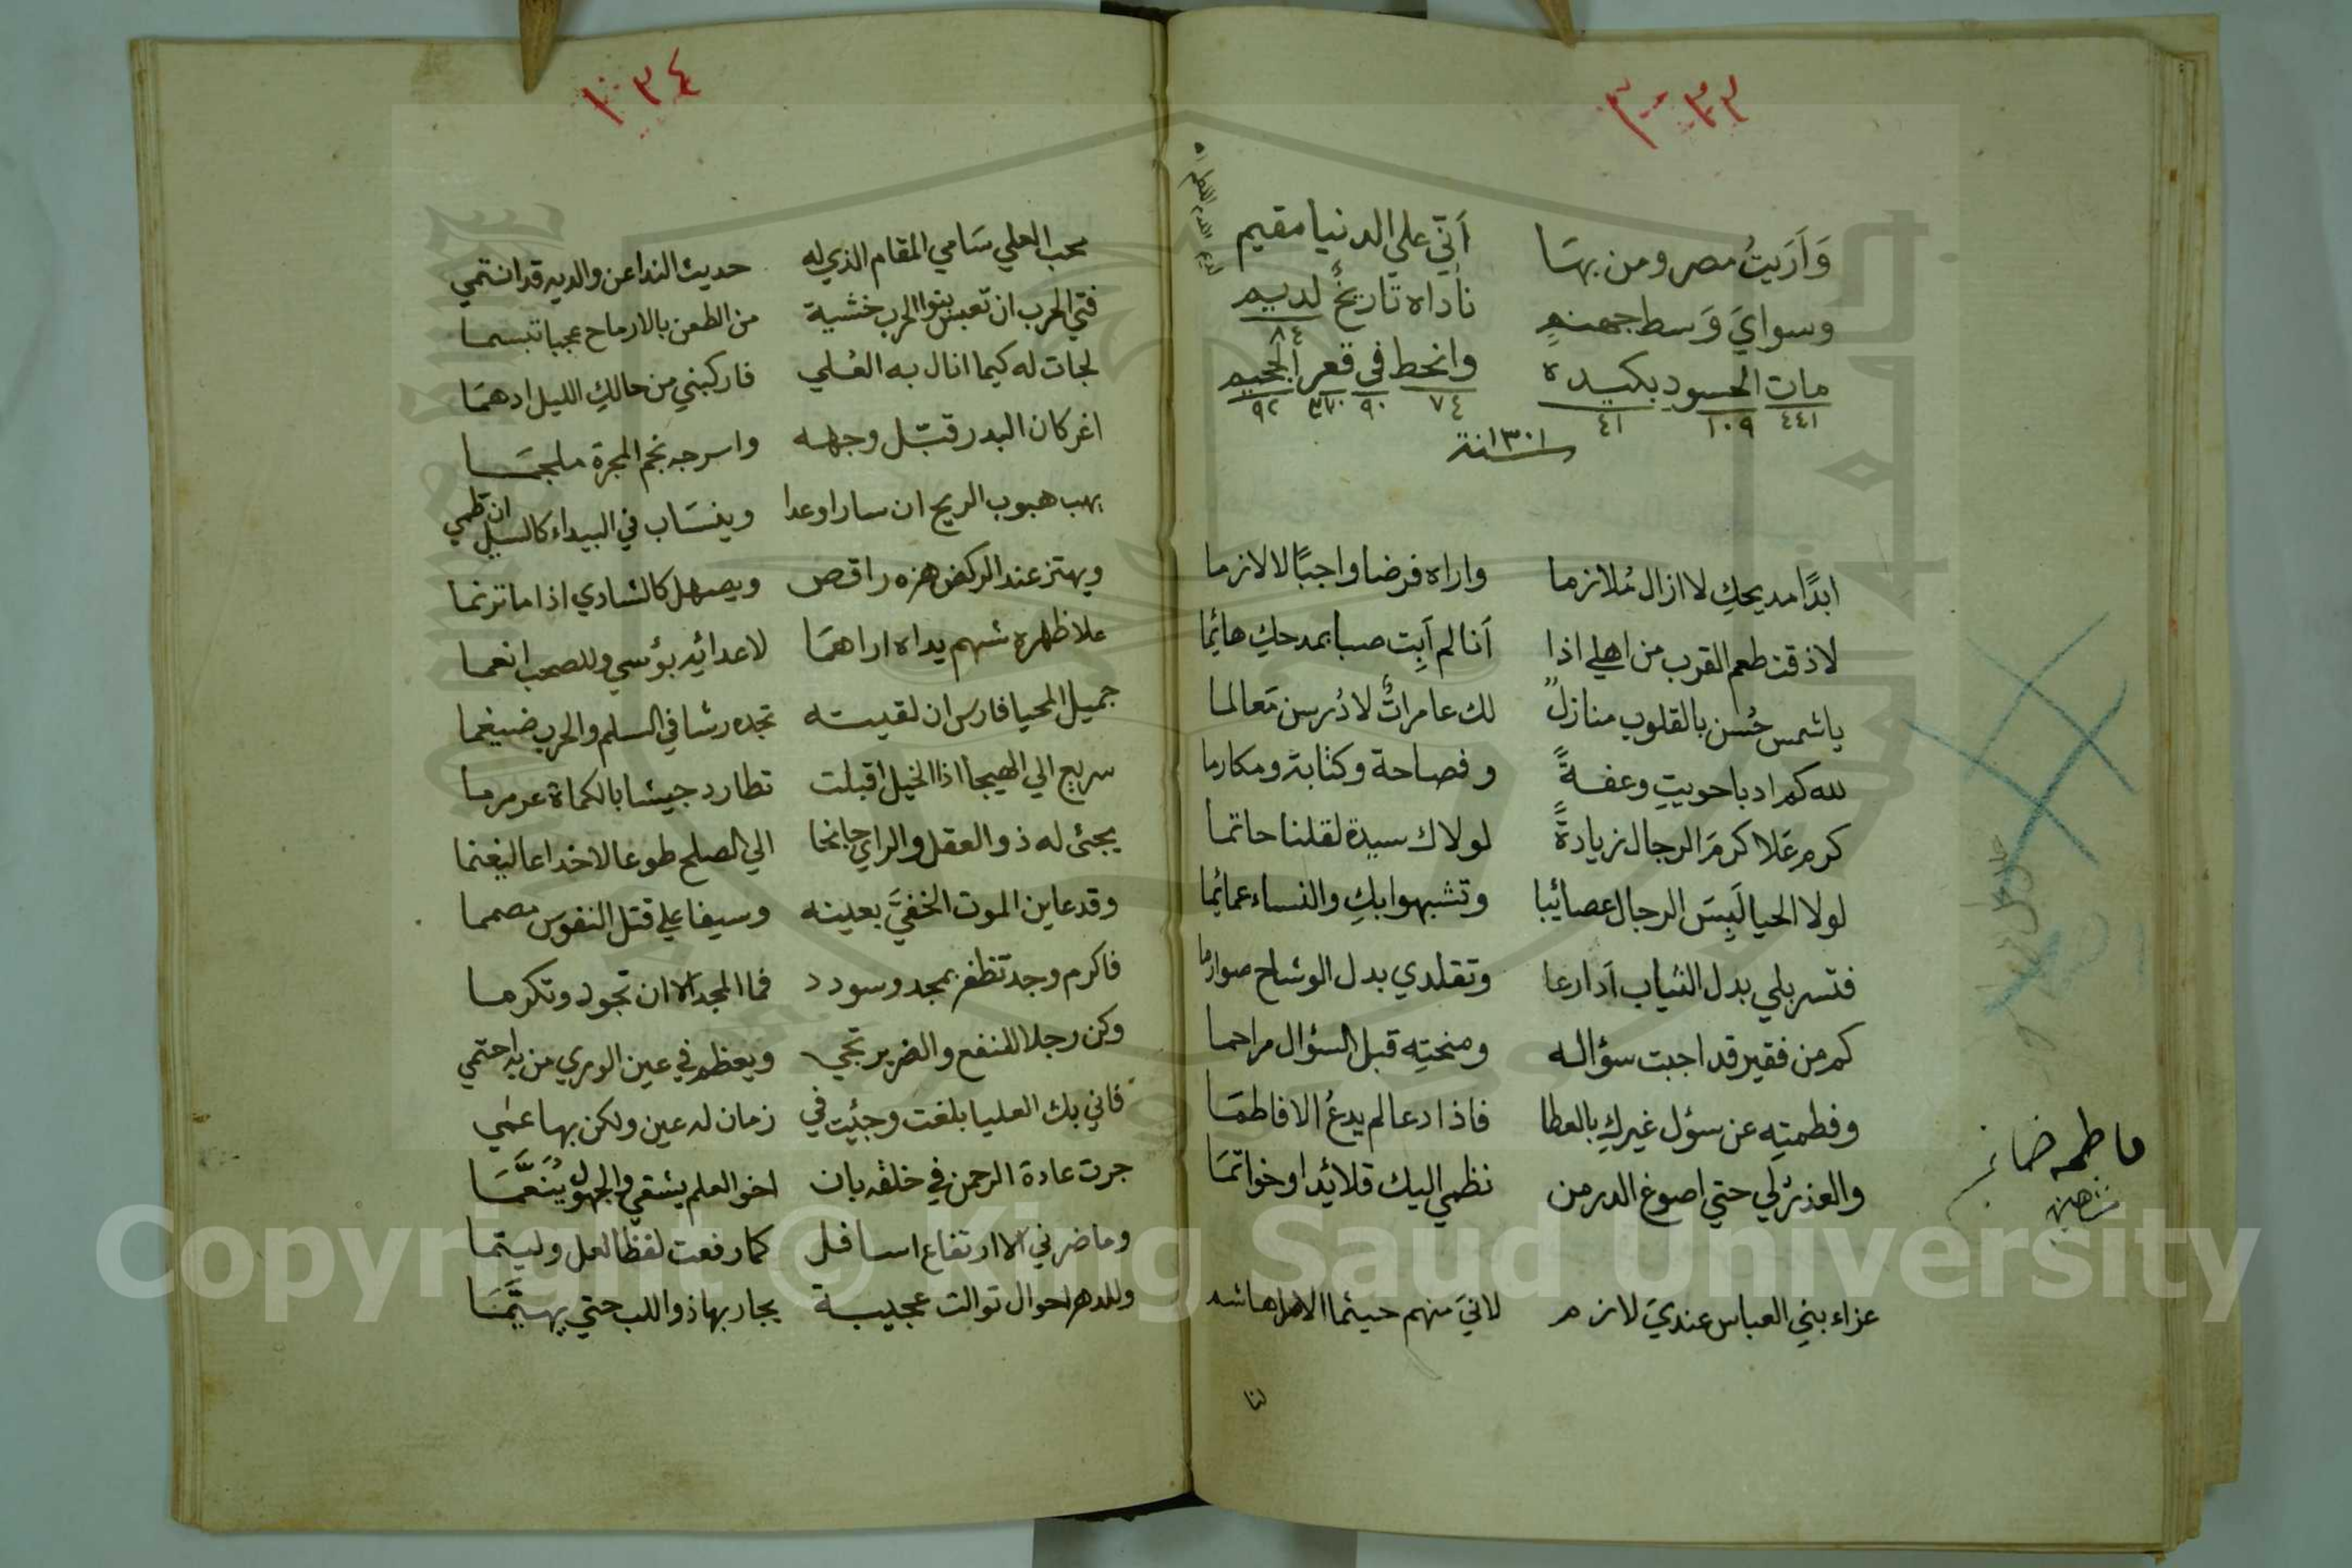 ٣٠٣٣
وَاَرَيتُ مصر ومن بهسَا اَنّي علي الدنيا مقيم
وسوايَ وَسط جهنمٍ ناداه تاريخٌ لديهم
٨٤
مات الحسود بكيده وانحط في قعر الجحيم
٤٤١ ١٠٩ ٤١ ٧٤ ٩٠ ٣٧٠ ٩٢
سنة ١٣٠١
ابدًا مديحكِ لا ازال مُلازما واراه فرضا واجبًا لا لازما
لا ذقت طعم القرب من اهلي اذا اَنا لم اَبِت صبا بمدحكِ هائِما
يا شمس حُسن بالقلوب منازلٌ لك عامراتٌ لا دُرسن مَعالما
لله كم ادبا حويتِ وعفةً وفصاحة وكتابة ومكارما
كرم عَلا كرمَ الرجال زيادةً لولاك سيدة لقلنا حاتما
لولا الحيا لَبِسَ الرجال عصائبا وتشبهوا بكِ والنساء عمائِما
فتسربلي بدل الثياب اَدارعا وتقلدي بدل الوشاح صوارما
كم من فقير قد اجبت سؤاله ومنحتِه قبل السؤال مراحما
وفطمتِه عن سؤل غيركِ بالعطا فاذا دعا لم يدعُ الا فاطمَا
والعذر لي حتي اصوغ الدر من نظمي اليك قلائدا وخواتمَا
فاطمه خانم
شاهين
عزاء بني العباس عنديَ لازم لانيَ منهم حيثما الام هاشم
لنا
١٠٣٤
محب العلي سَامي المقام الذي له حديث الندا عن والديه قد انتمي
فتي الحرب ان تعبس بنوا الحرب خشية من الطعن بالارماح عجبا تبسما
لجات له كيما انال به العُلي فاركبني من حالكِ الليل ادهمَا
اغر كان البدر قبّل وجهه واسرجه نجم المجرة ملجمَا
يهب هبوب الريح ان سار او عدا وينسَاب في البيداء كالسيل ان طمي
ويهتز عند الركض هزه راقص ويصهل كالشادي اذا ما ترنما
علا ظهره شهم يداه اراهمَا لاعدائه بؤسي وللصحب انعما
جميل المحيا فارس ان لقيته تجده رشا في السلم والحرب ضيغما
سريع الي الهيجا اذا الخيل اقبلت تطارد جيشا بالكماة عرمرما
يجئ له ذو العقل والراي جانحا الي الصلح طوعا لا خداعا ليغنما
وقد عاين الموت الخفيَّ بعينه وسيفا علي قتل النفوس مصمما
فاكرم وجد تظفر بمجد وسودد فما المجد الا ان تجود وتكرما
وكن رجلا للنفع والضر يرتجي ويعظم في عين الوري من به احتمي
فاني بك العليا بلغت وجئت في زمان له عين ولكن بها عمٰي
جرت عادة الرحمن في خلقه بان اخو العلم يشقي والجهول يُنَعَّمَا
وما ضرني الا ارتفاع اسافل كما رفعت لفظا لعل وليتما
وللدهر احوال توالت عجيبة يحار بها ذو اللب حتي يهيَّمَا